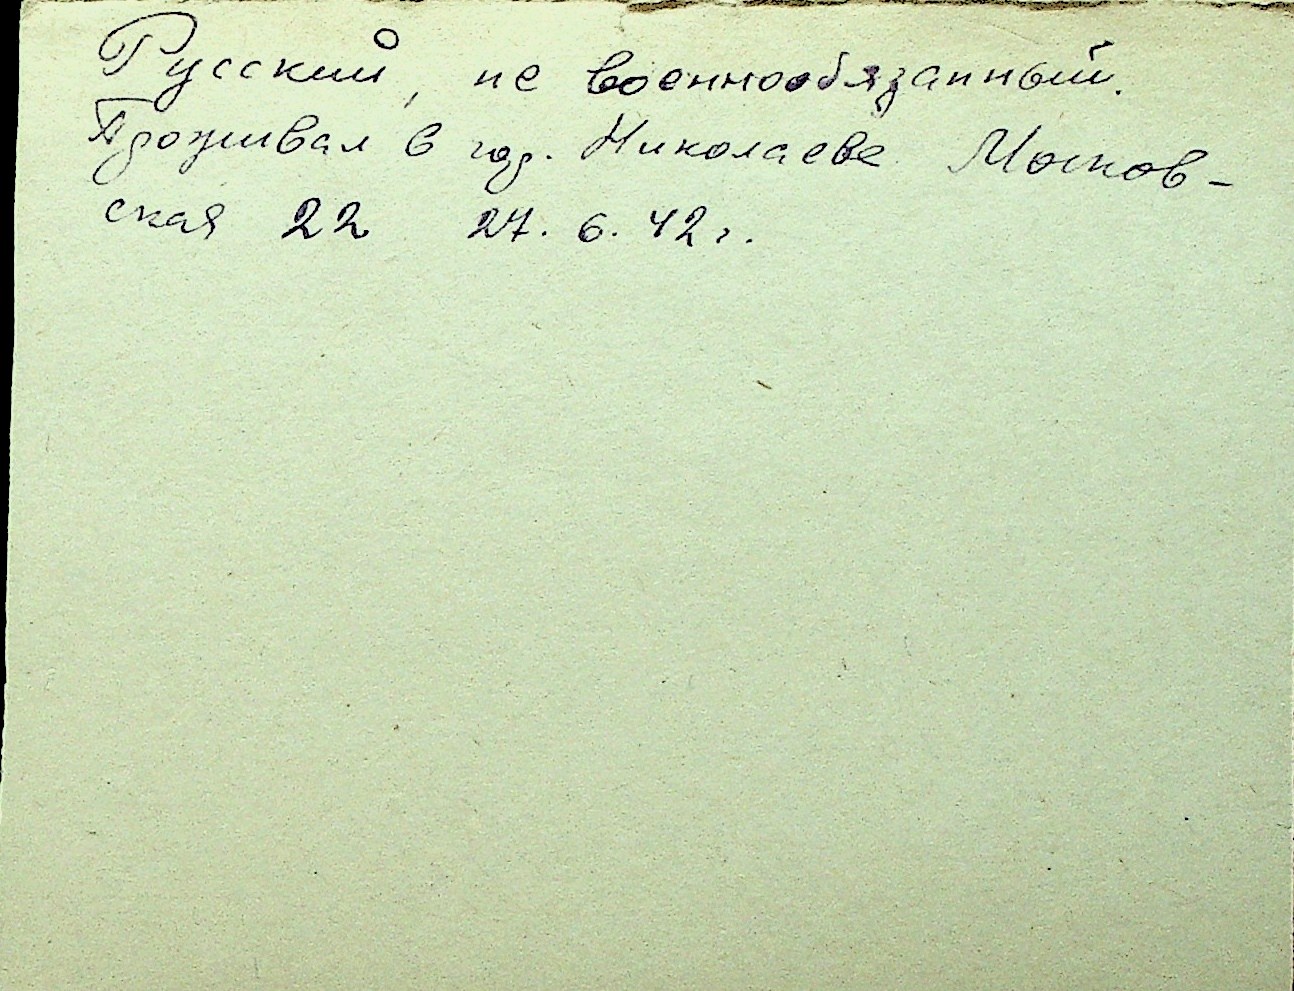 Русский, не военнообязанный.
Проживал в гор. Николаеве Москов-
ская 22 27. 6. 42 г.